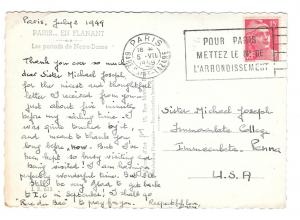 Paris, July 2 1949
PARIS... EN FLANANT
Les portails de Notre-Dame
Thank you ever so much
dear Sister Michael Joseph
for the nicest and thoughtful
letter I received from you
just about five minutes
before my sailing time. I
was quite touched by it,
and meant to thank you
long before, now. But I've
been kept so busy visiting and
being visited. I am having a
perfectly wonderful time. But will
still be very glad to get back
to I.C. in September! I shall go
"Rue du Bac" to pray for you.
PARIS
18 H
5 - VII
1949
POUR PARIS
METTEZ LE N° DE
L'ARRONDISSEMENT
Sister Michael Joseph
Immaculata College
Immaculata
Penna
U.S.A